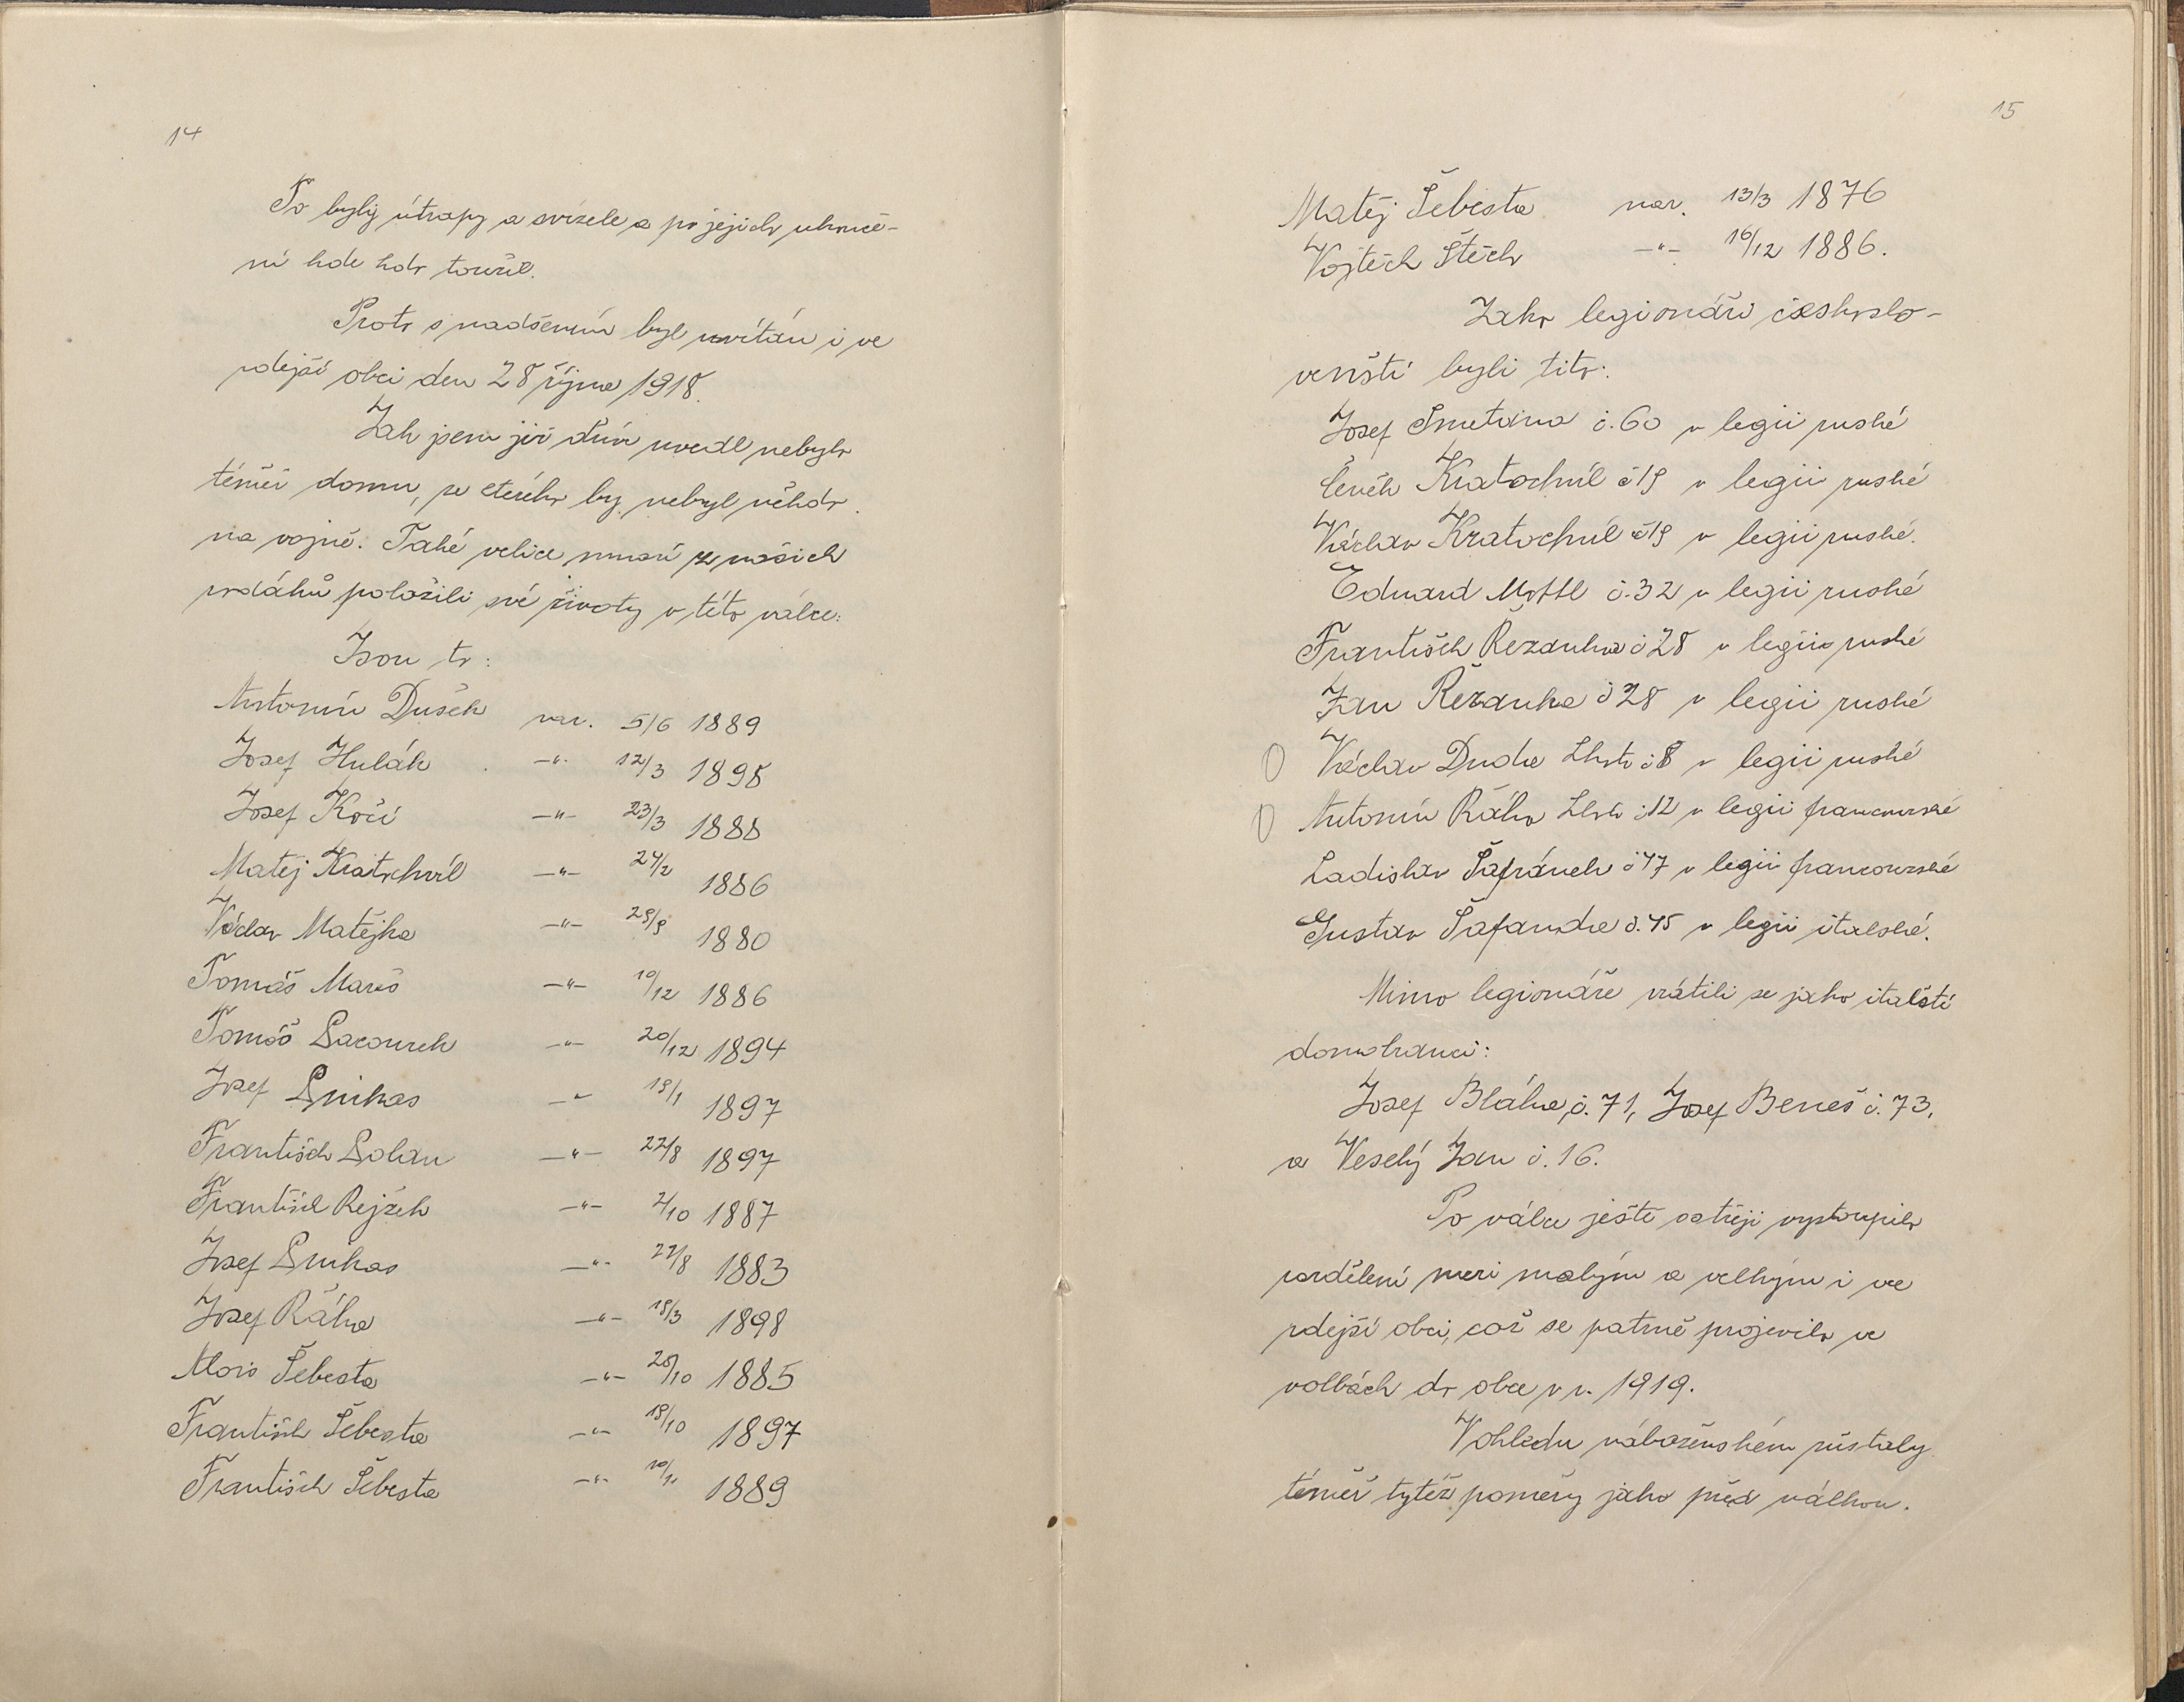 14
To byly útrapy a svízele a po jejich ukonče-
ní kde kdo toužil.
Proto s nadšením byl uvítán i ve
zdejší obci den 28 října 1918.
Jak jsem již dřív uvedl nebylo
téměř domu, ze kterého by nebyl někdo
na vojně. Také velice mnozí z našich
vojáků položili své životy v této válce.
Jsou to:
Antonín Dušek nar. 5/6 1889
Josef Hulák -"- 12/3 1895
Josef Kočí -"- 23/3 1888
Matěj Kratochvíl -"- 24/2 1886
Václav Matějka -"- 29/9 1880
Tomáš Mareš -"- 10/12 1886
Tomáš Pacourek -"- 20/12 1894
Josef Pinkas -"- 19/1 1897
František Polan -"- 22/8 1897
František Rejžek -"- 2/10 1887
Josef Pinkas -"- 22/8 1883
Josef Ráha -"- 19/3 1898
Alois Šebesta -"- 28/10 1885
František Šebesta -"- 19/10 1897
František Šebesta -"- 10/11 1889
15
Matěj Šebesta nar. 13/3 1876
Vojtěch Štěch -"- 16/12 1886.
Jako legionáři českoslo-
venští byli tito:
Josef Smetana č. 60 v legii ruské
Čeněk Kratochvíl č 19 v legii ruské
Václav Kratochvíl č 19 v legii ruské.
Eduard Mottl č. 32 v legii ruské
František Řezanka č 28 v legii ruské
Jan Řezanka č 28 v legii ruské
Václav Duda Lhota č 8 v legii ruské
Antonín Ráha Lhota č 12 v legii francouzské
Ladislav Šafránek č 47 v legii francouzské
Gustav Šafanda č. 45 v legii italské.
Mimo legionáře vrátili se jako italští
domobranci:
Josef Bláha č. 71, Josef Beneš č. 73,
a Veselý Jan č. 16.
Po válce ještě ostřeji vystoupilo
rozdělení mezi malým a velkým i ve
zdejší obci, což se patrně projevilo ve
volbách do obce v r. 1919.
V ohledu náboženském zůstaly
téměř tytéž poměry jako před válkou.